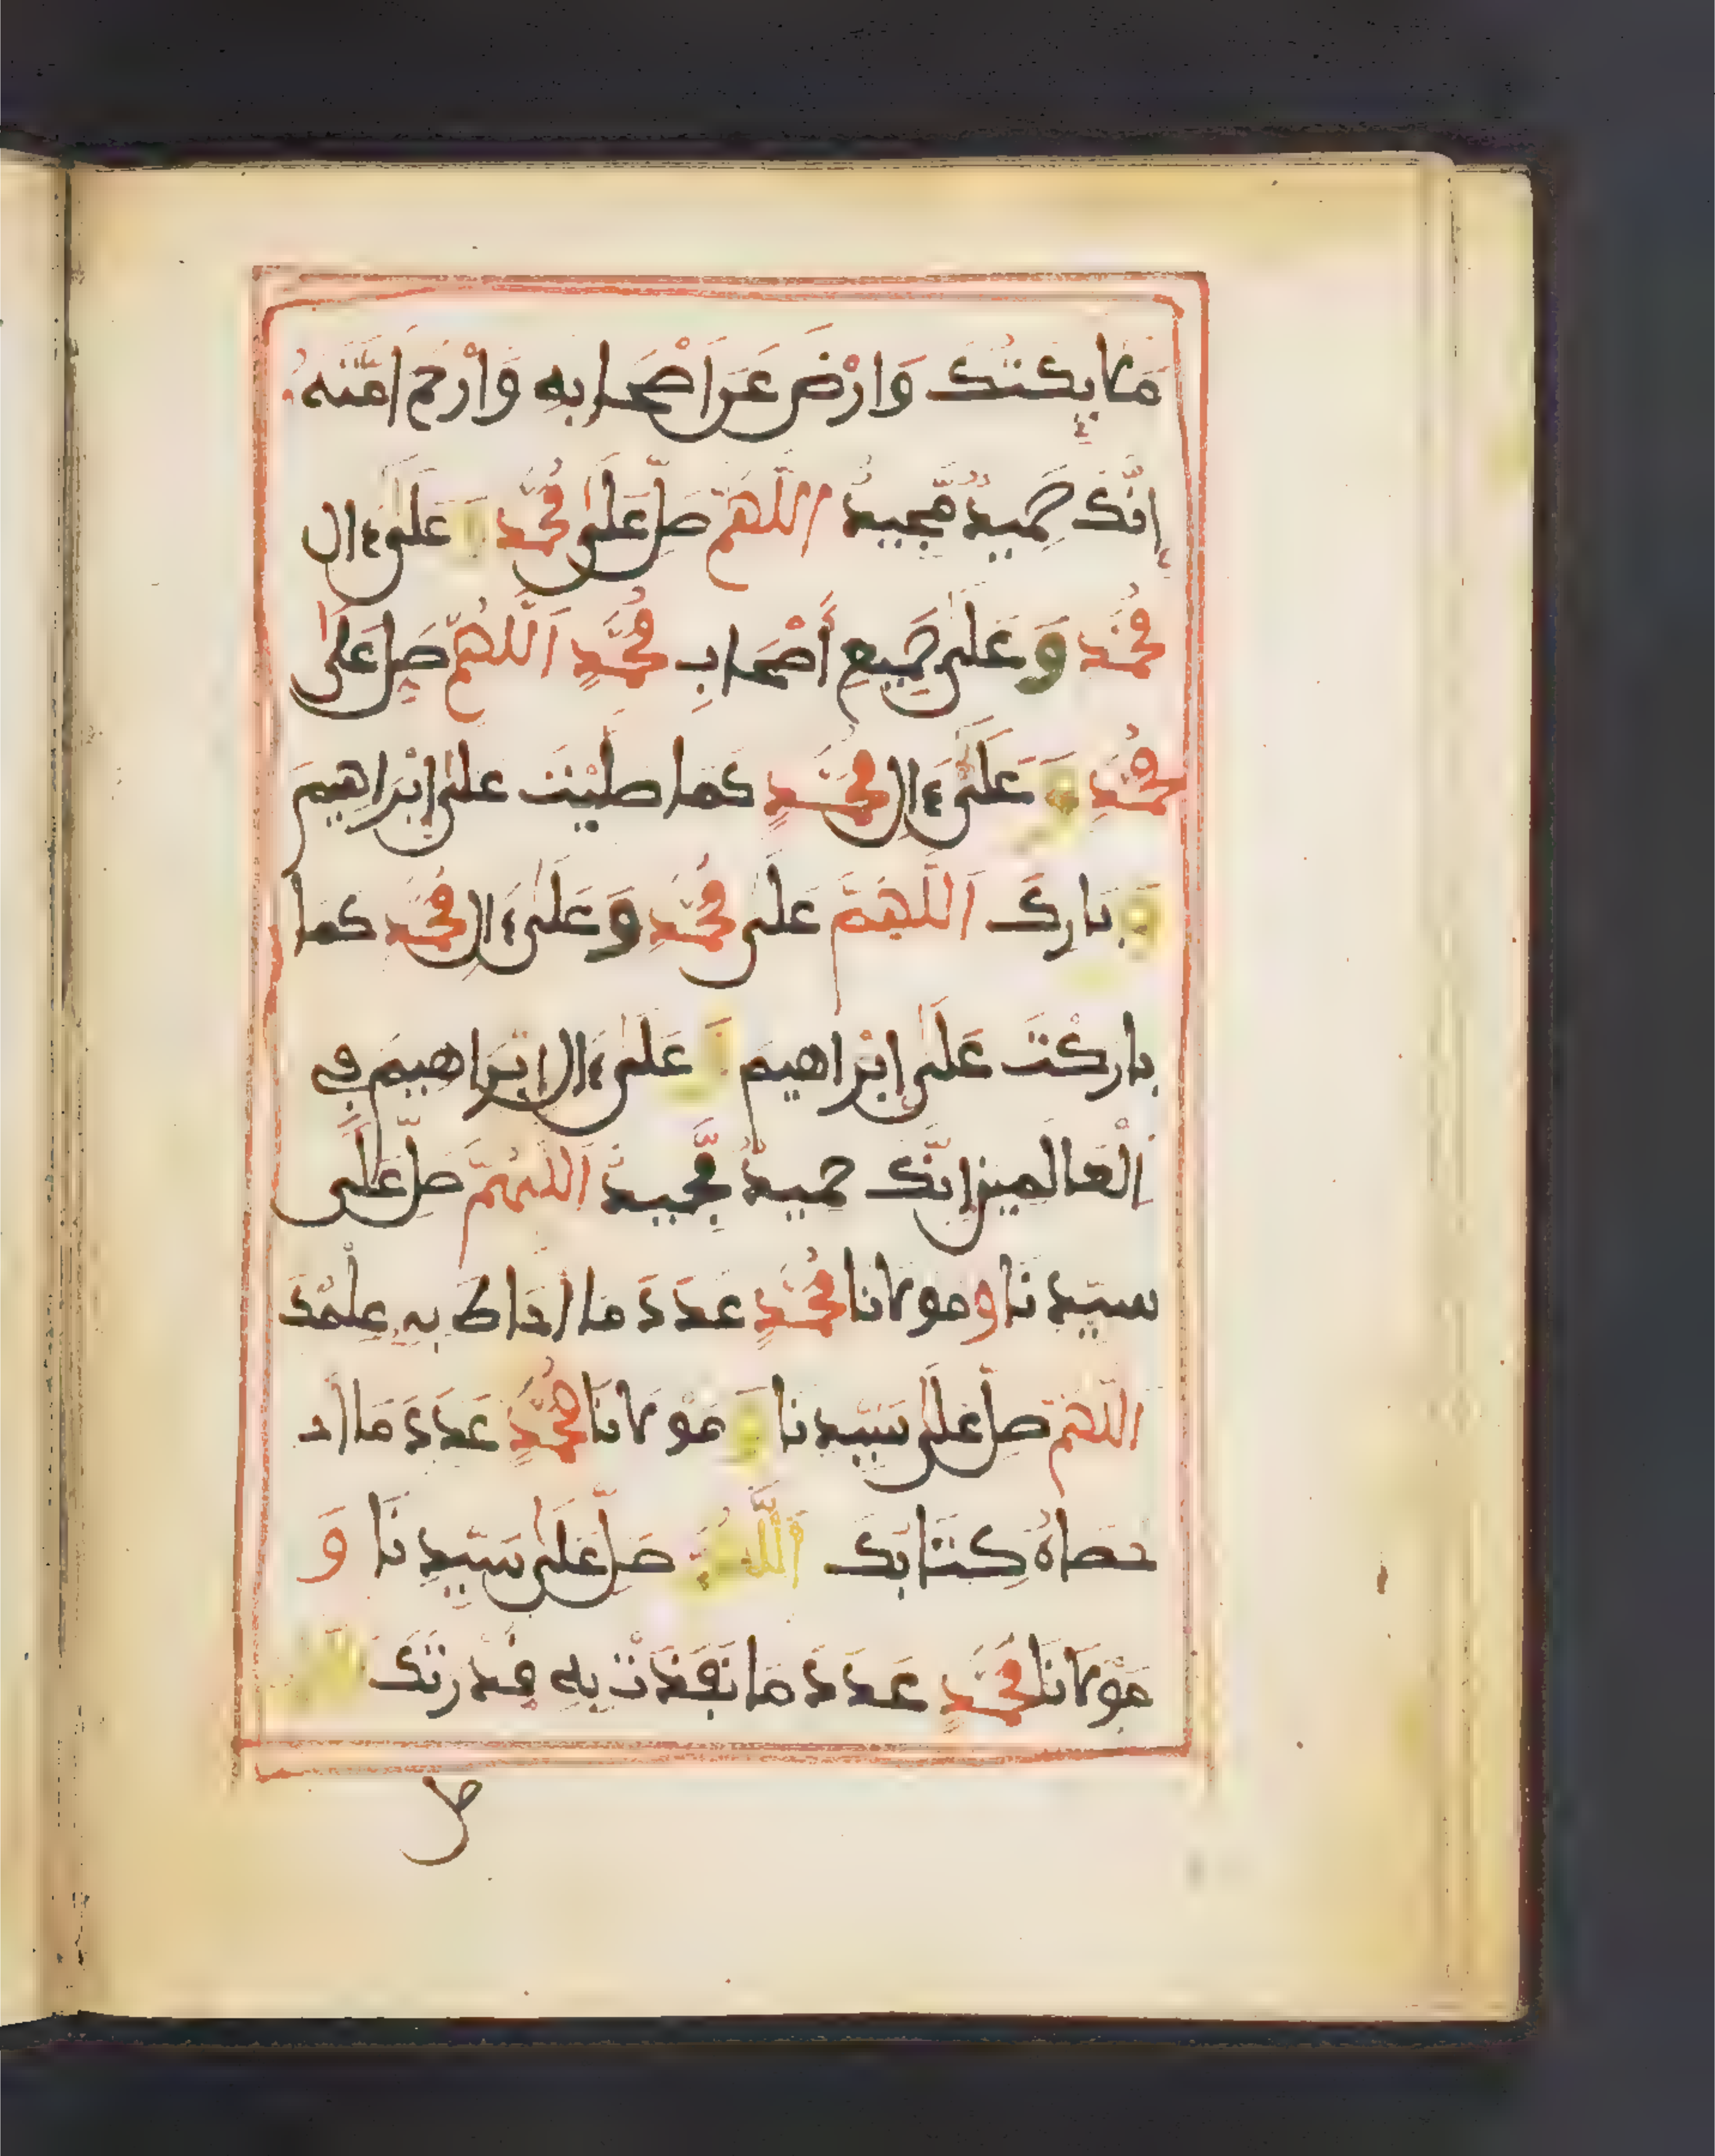 ملايكتك وارض عن اصحابه وارحم امته
إنّك حميد مّجيد اللهم صل على محمد و على ءال
محمد و على جميع أصحاب محمد اللهم صل على
محمد و على ءال محمد كما صليت على إبراهيم
و بارك اللهم على محمد و على ءال محمد كما
باركت على إبراهيم و على ءال إبراهيم في
العالمين إنك حميد مّجيد اللهم صل على
سيدنا و مولانا محمد عدد ما احاط به علمك
اللهم صل على سيدنا و مولانا محمد عدد ما ا
حصاه كتابك اللهم صل على سيدنا و
مولانا محمد عدد ما نفذت به قدرتك